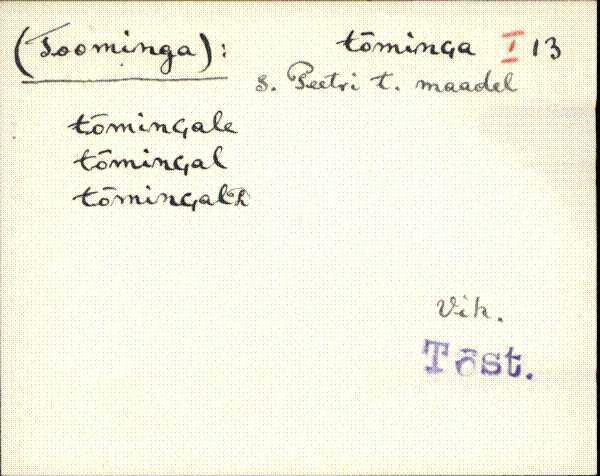 (Toominga): tōminga I 13
s. Peetri t. maadel
tōmingale
tōmingal
tōmingalt
Vih.
Tõst.